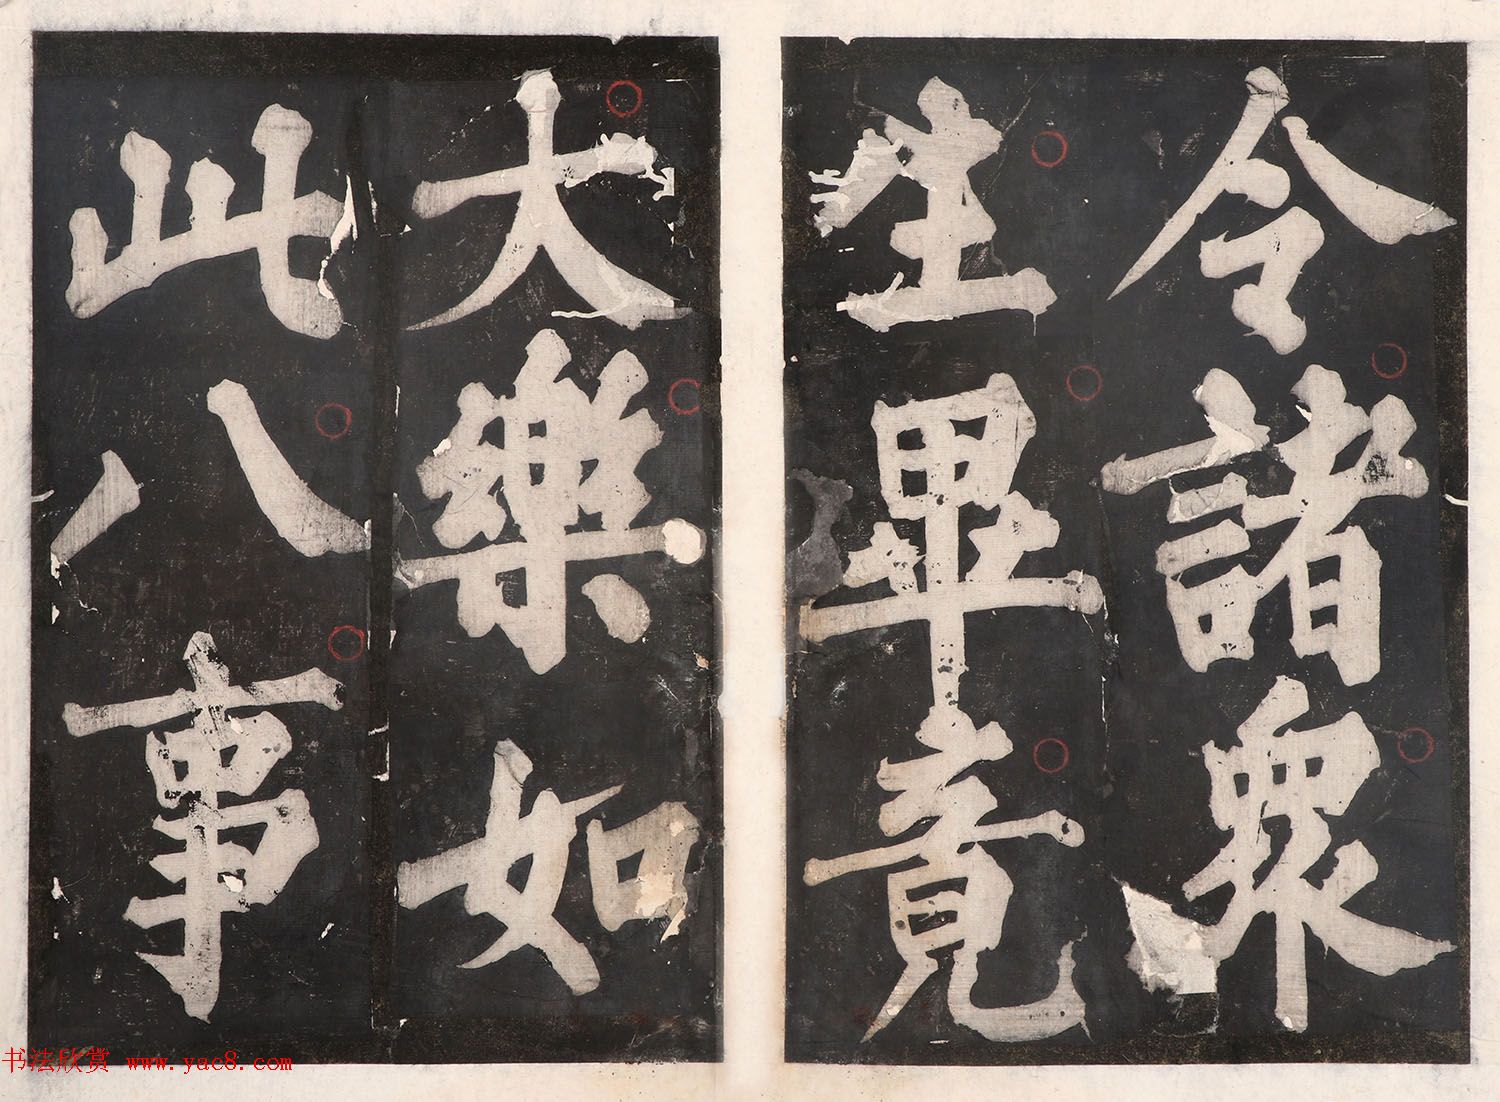 令諸衆
生畢竟
大樂如
此八事
书法欣赏 www.yac8.com